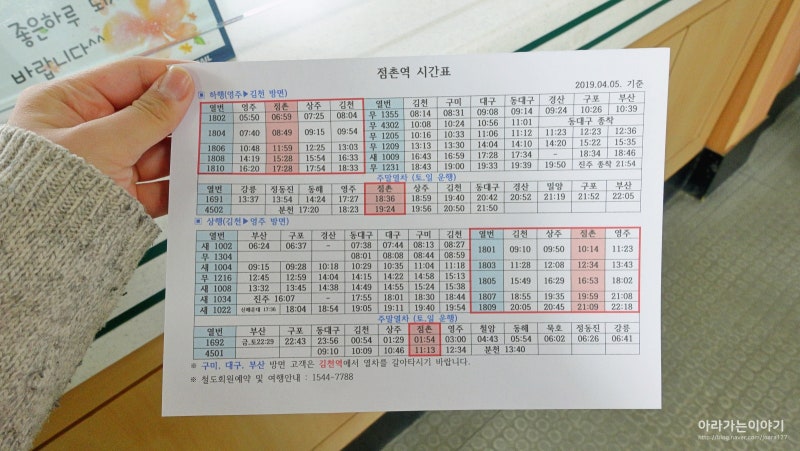 좋은하루 되
바랍니다^^
점촌역 시간표
2019.04.05. 기준
▣ 하행(영주▶김천 방면)
열번 영주 점촌 상주 김천 열번 김천 구미 대구 동대구 경산 구포 부산
1802 05:50 06:59 07:25 08:04 무 1355 08:14 08:31 09:08 09:14 09:24 10:26 10:39
무 4302 10:08 10:24 10:56 11:01 동대구 종착
1804 07:40 08:49 09:15 09:54 무 1205 10:16 10:33 11:06 11:12 11:23 12:23 12:36
1806 10:48 11:59 12:25 13:03 무 1209 13:13 13:30 14:04 14:10 14:20 15:22 15:35
1808 14:19 15:28 15:54 16:33 새 1009 16:43 16:59 17:28 17:34 - 18:34 18:46
1810 16:20 17:28 17:54 18:33 무 1231 18:43 19:00 19:33 19:39 19:50 진주 종착 21:54
주말열차 (토,일 운행)
열번 강릉 정동진 동해 영주 점촌 상주 김천 동대구 경산 밀양 구포 부산
1691 13:37 13:54 14:24 17:27 18:36 18:59 19:40 20:42 20:52 21:19 21:52 22:05
4502 분천 17:20 18:23 19:24 19:56 20:50 21:50
▣ 상행(김천▶영주 방면)
열번 부산 구포 경산 동대구 대구 구미 김천 열번 김천 상주 점촌 영주
새 1002 06:24 06:37 - 07:38 07:44 08:13 08:27 1801 09:10 09:50 10:14 11:23
무 1304 08:01 08:08 08:44 08:59
새 1004 09:15 09:28 10:18 10:29 10:35 11:04 11:18 1803 11:28 12:08 12:34 13:43
무 1216 12:45 12:59 14:04 14:15 14:22 14:58 15:13 1805 15:49 16:29 16:53 18:02
새 1008 13:32 13:45 14:38 14:49 14:55 15:24 15:38
새 1034 진주 16:07 - 17:55 18:01 18:30 18:44 1807 18:55 19:35 19:59 21:08
새 1022 신해운대 17:36 18:04 18:54 19:05 19:11 19:40 19:54 1809 20:05 20:45 21:09 22:18
주말열차 (토,일 운행)
열번 부산 구포 동대구 김천 상주 점촌 영주 철암 동해 묵호 정동진 강릉
1692 금,토22:29 22:43 23:56 00:54 01:29 01:54 03:00 04:43 05:54 06:02 06:26 06:41
4501 09:10 10:09 10:46 11:13 12:34 분천 13:40
※ 구미, 대구, 부산 방면 고객은 김천역에서 열차를 갈아타시기 바랍니다.
※ 철도회원예약 및 여행안내 : 1544-7788
아라가는이야기